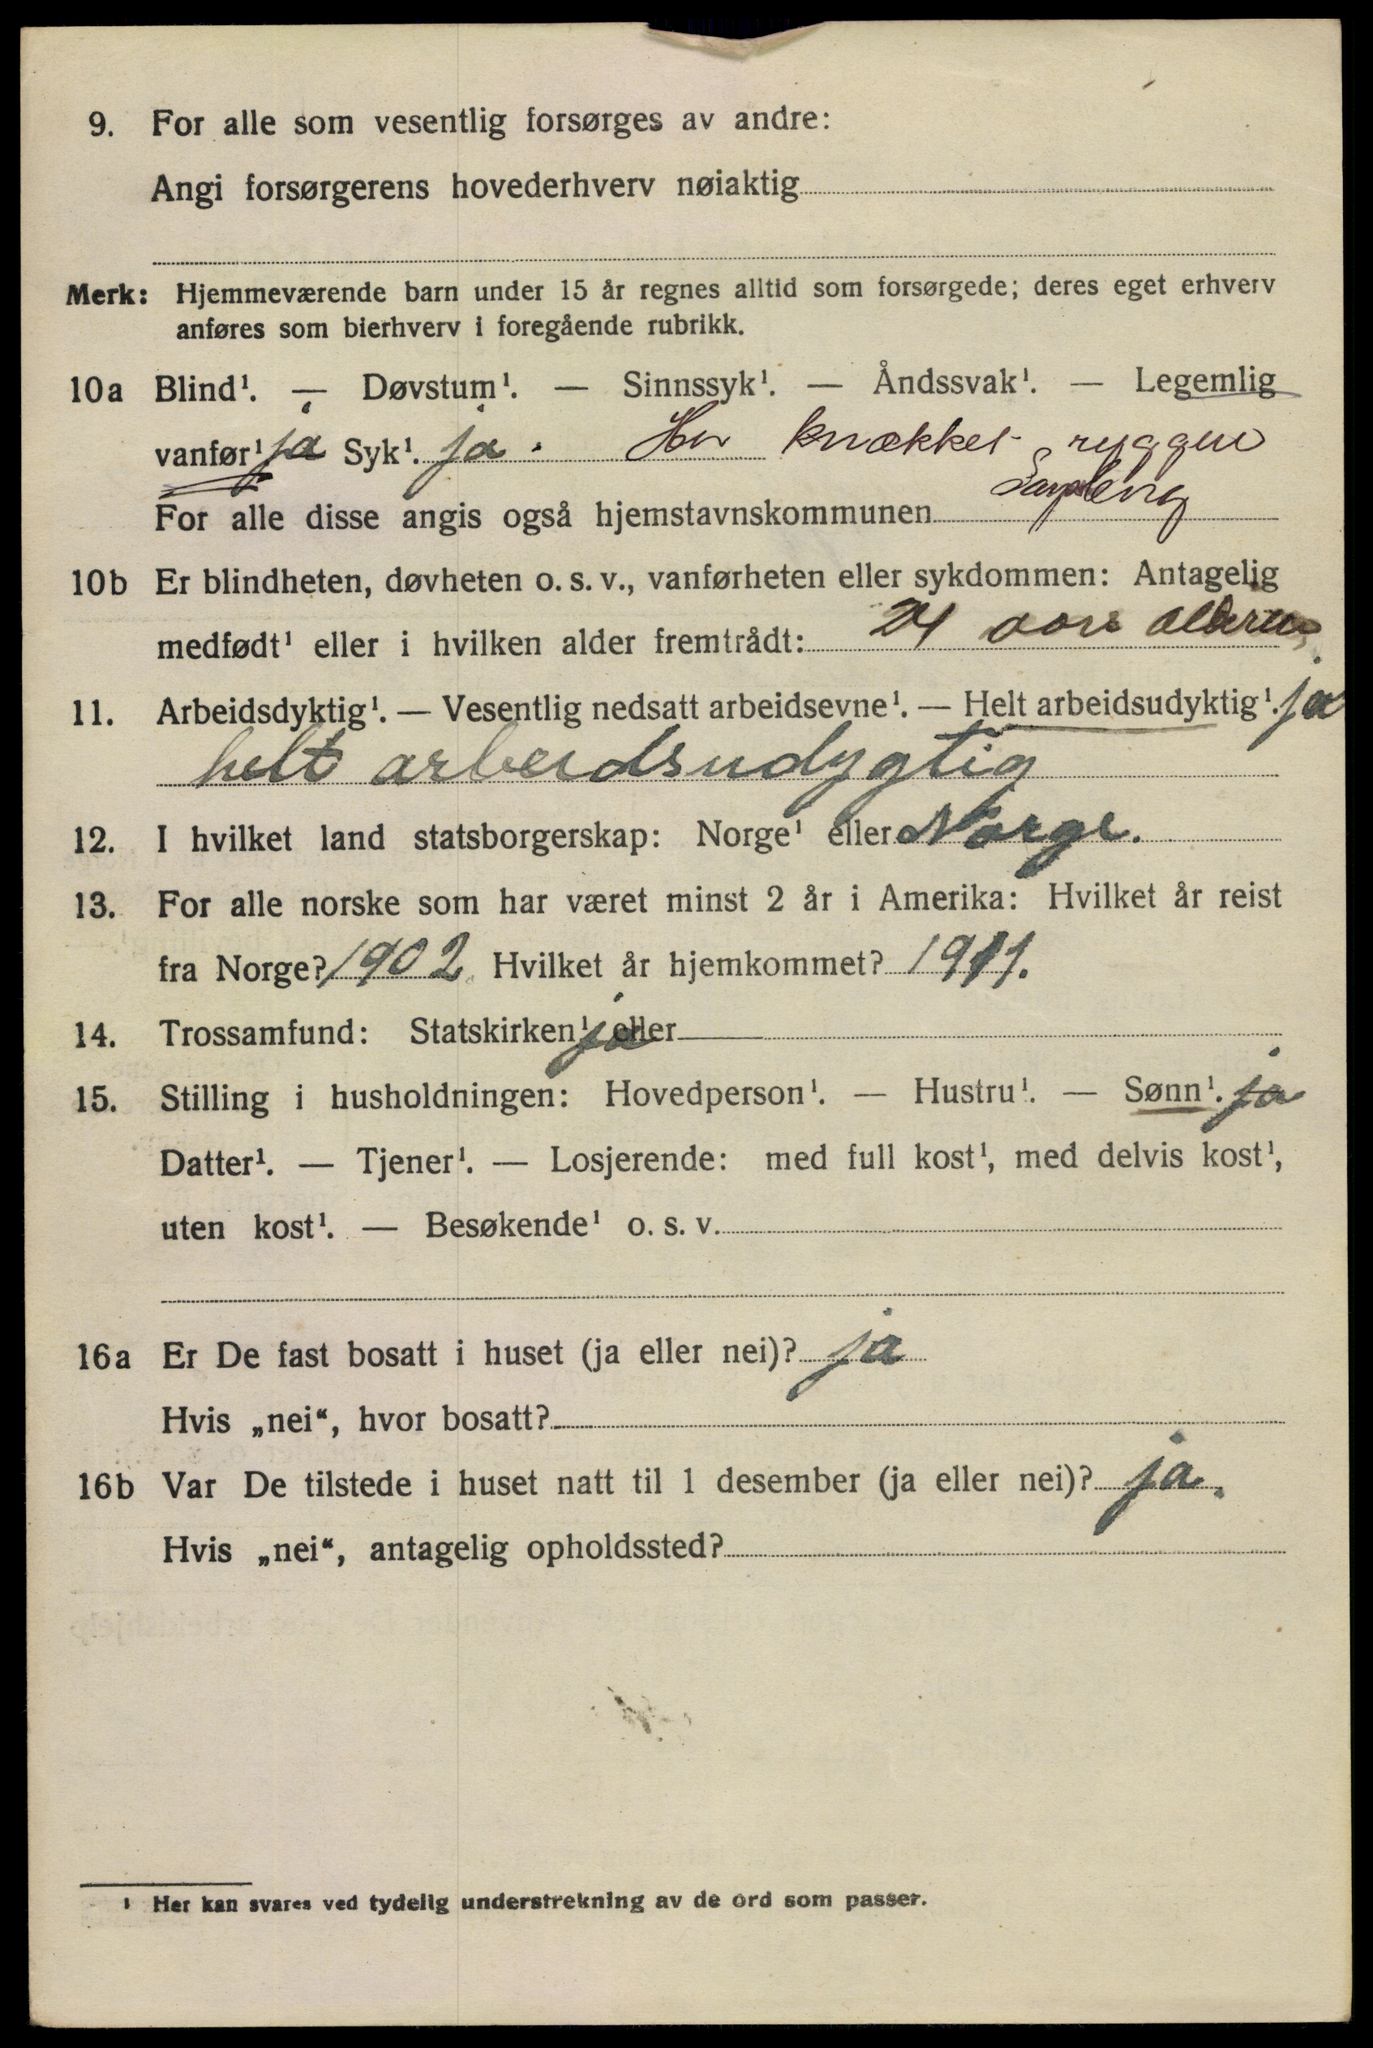 9. For alle som vesentlig forsørges av andre:
Angi forsørgerens hovederhverv nøiaktig
Merk: Hjemmeværende barn under 15 år regnes alltid som forsørgede; deres eget erhverv
anføres som bierhverv i foregående rubrikk.
10a Blind¹. — Døvstum¹. — Sinnssyk¹. — Åndssvak¹. — Legemlig
vanfør¹ ja Syk¹. ja. Har knækket ryggen
For alle disse angis også hjemstavnskommunen
10b Er blindheten, døvheten o. s. v., vanførheten eller sykdommen: Antagelig
medfødt¹ eller i hvilken alder fremtrådt: 24 aars alderen
11. Arbeidsdyktig¹. — Vesentlig nedsatt arbeidsevne¹. — Helt arbeidsudyktig¹. ja
helt arbeidsudygtig
12. I hvilket land statsborgerskap: Norge¹ eller Norge.
13. For alle norske som har været minst 2 år i Amerika: Hvilket år reist
fra Norge? 1902 Hvilket år hjemkommet? 1911.
14. Trossamfund: Statskirken¹ ja eller
15. Stilling i husholdningen: Hovedperson¹. — Hustru¹. — Sønn¹. ja
Datter¹. — Tjener¹. — Losjerende: med full kost¹, med delvis kost¹,
uten kost¹. — Besøkende¹ o. s. v.
16a Er De fast bosatt i huset (ja eller nei)? ja
Hvis „nei“, hvor bosatt?
16b Var De tilstede i huset natt til 1 desember (ja eller nei)? ja.
Hvis „nei“, antagelig opholdssted?
¹ Her kan svares ved tydelig understrekning av de ord som passer.